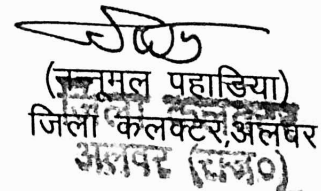 (नन्नूमल पहाडिया)
जिला कलक्टर,अलवर
अलवर (राज०)